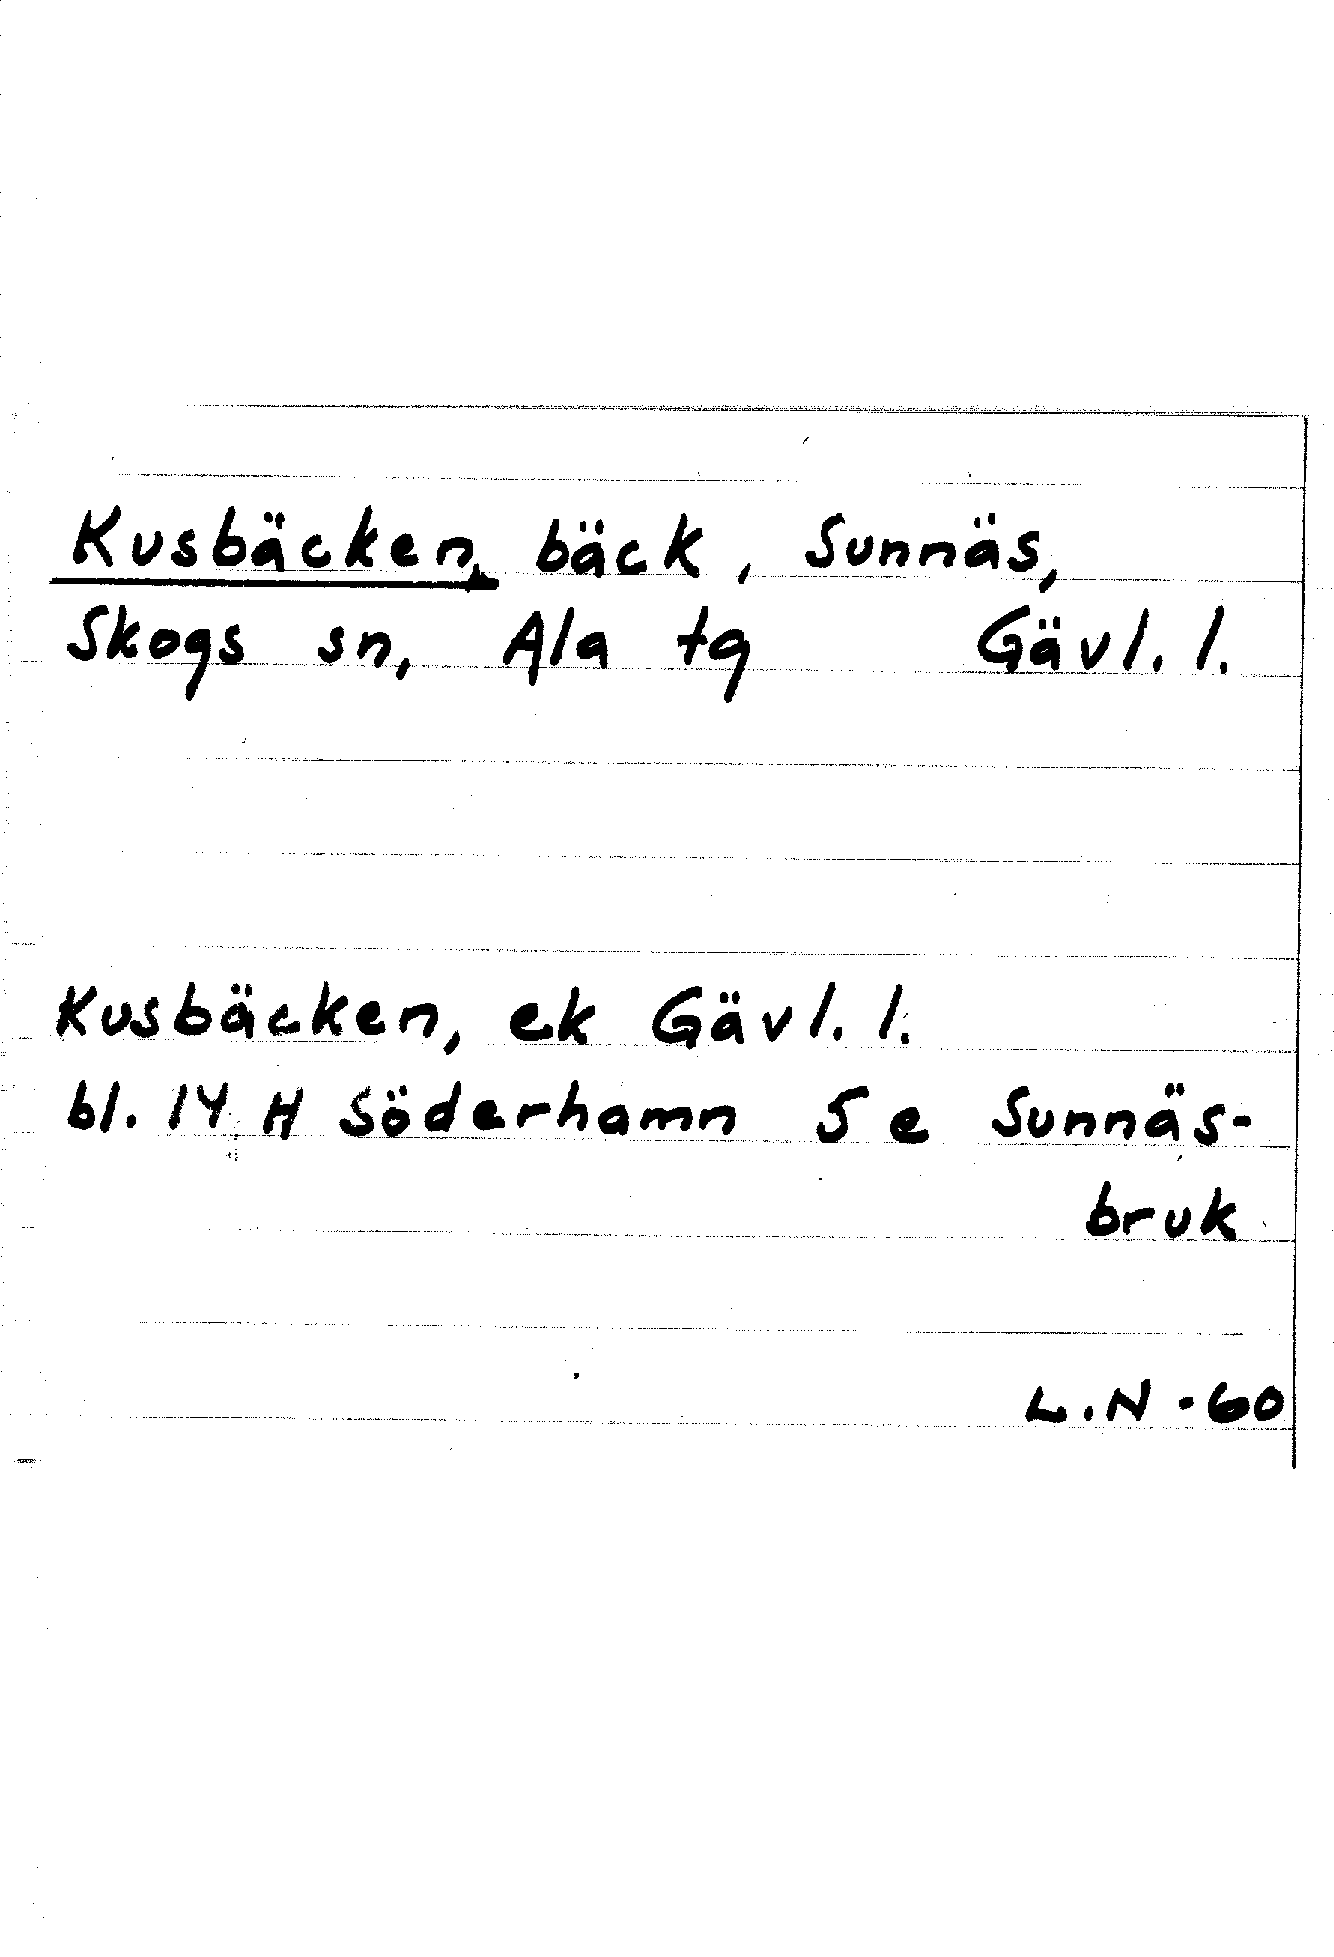 Kusbäcken, bäck, Sunnäs,
Skogs sn, Ala tg Gävl. l.
Kusbäcken, ek Gävl. l.
bl. 14 H Söderhamn 5 e Sunnäs-
bruk
L.N -60